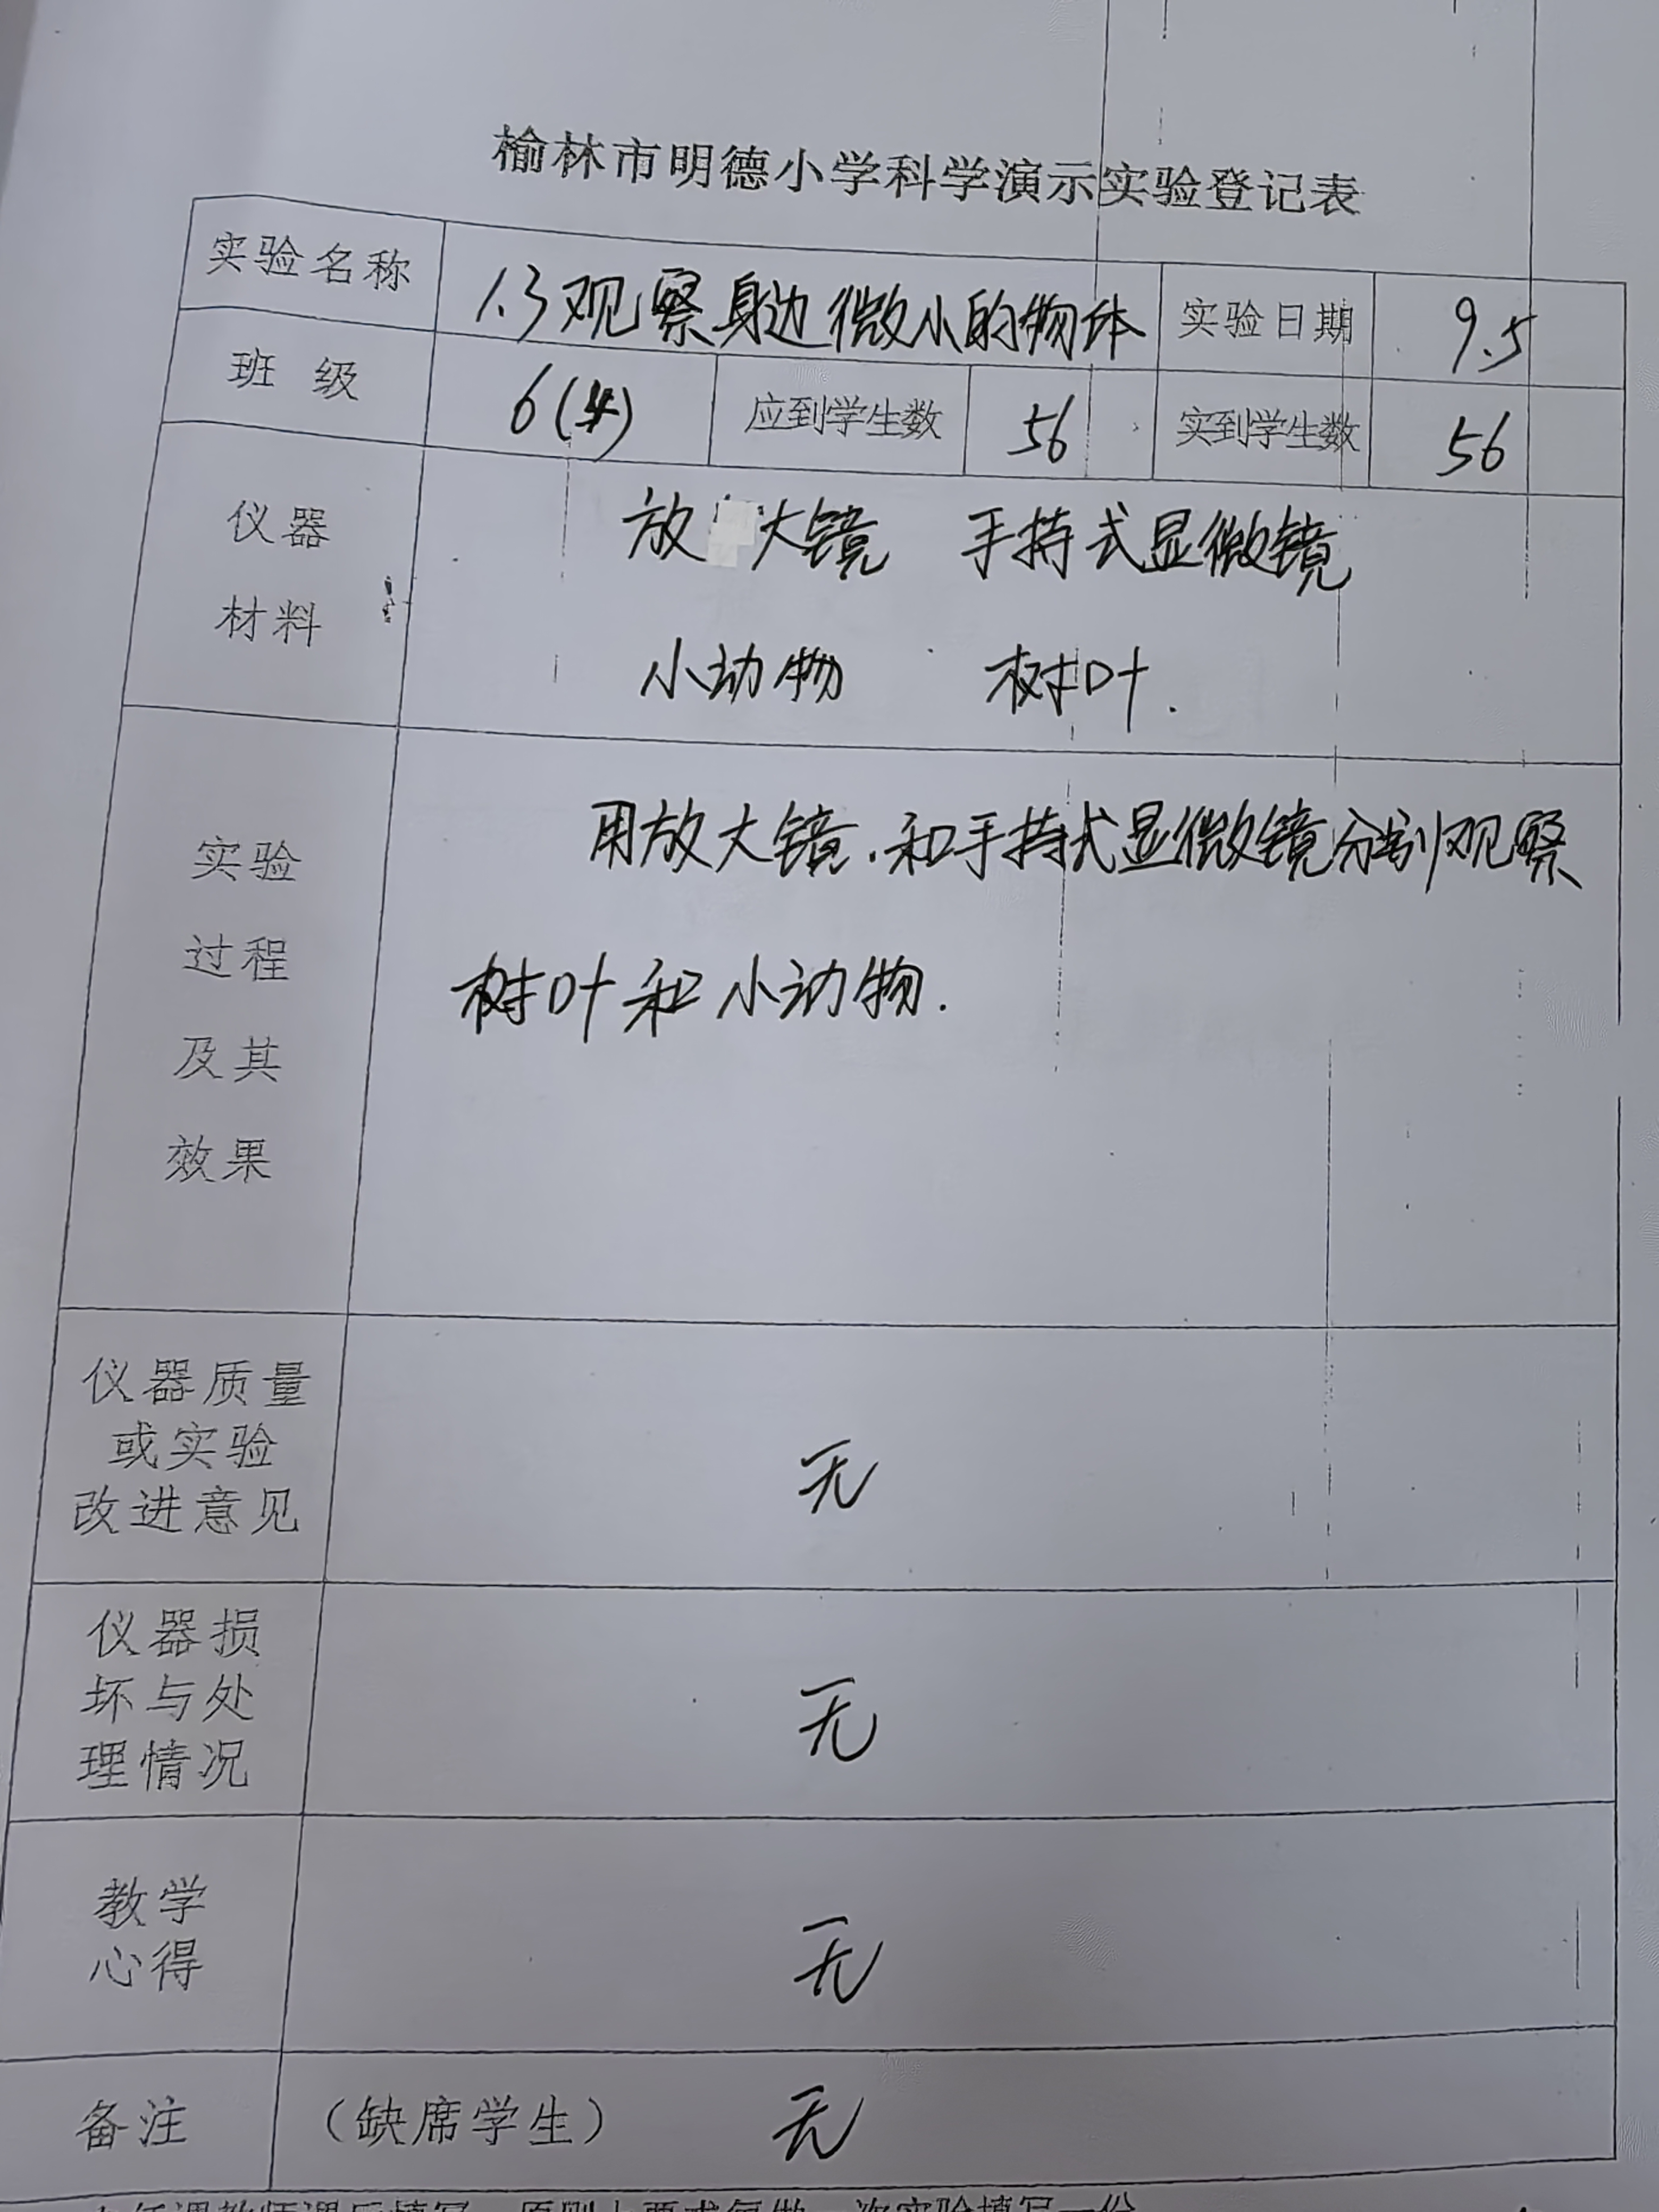 榆林市明德小学科学演示实验登记表
实验名称 1.3观察身边微小的物体 实验日期 9.5
班 级 6 应到学生数 56 实到学生数 56
仪器
材料
放大镜 手持式显微镜
小动物 树叶.
实验
过程
及其
效果
用放大镜.和手持式显微镜分别观察
树叶和小动物.
仪器质量
或实验
改进意见
无
仪器损
坏与处
理情况
无
教学
心得
无
备注 (缺席学生) 无